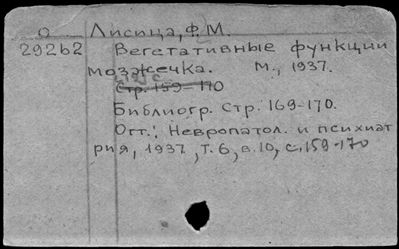 О Лисица, Ф.М.
29262 Вегетативные функции
мозжечка. М., 1937.
Стр. 159-170
Библиогр. Стр. 169-170.
Отт.: Невропатол. и психиат
рия, 1937, Т. 6, в. 10, с. 159-170